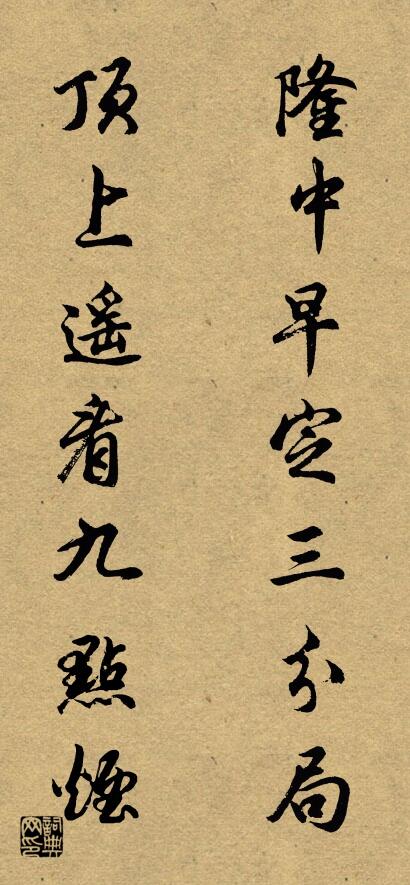 隆中早定三分局
頂上遥看九點煙
詞典网印